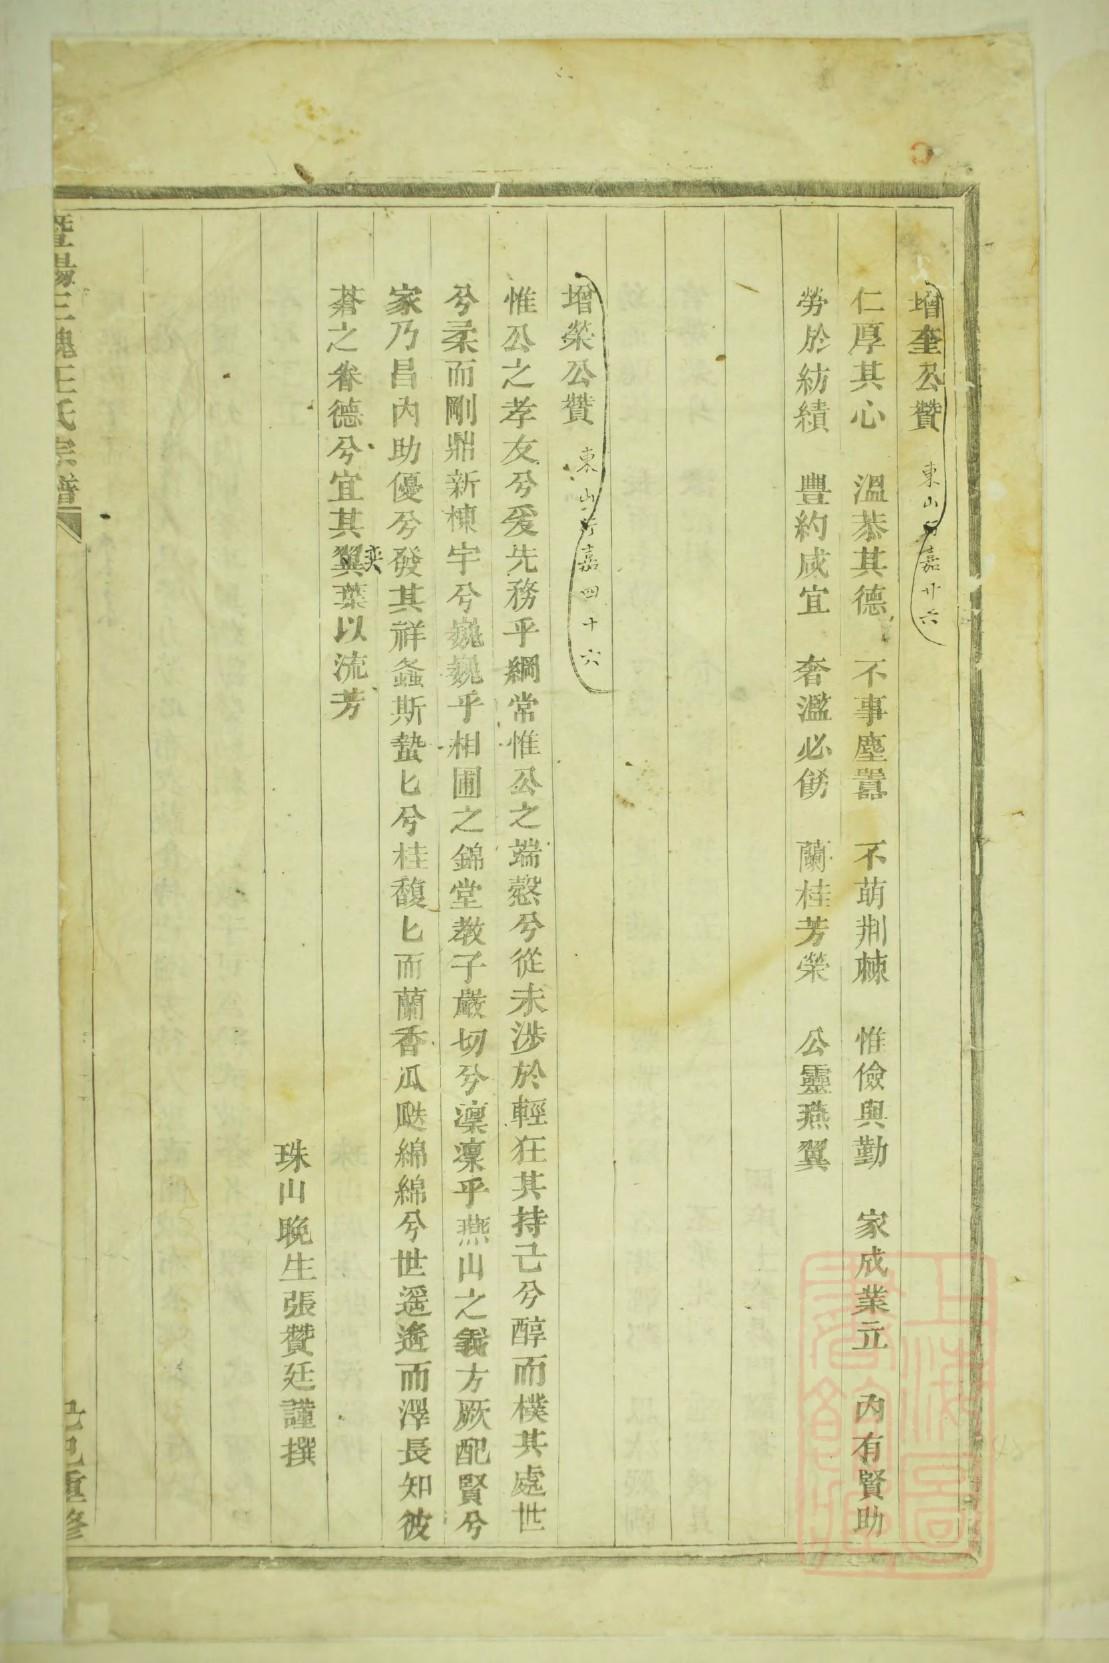 增奎公贊 東山行嘉廿六
仁厚其心 溫恭其德 不事塵囂 不萌荆棘 惟儉與勤 家成業立 內有賢助
勞於紡績 豐約咸宜 奢濫必飭 蘭桂芳榮 公靈燕翼
增榮公贊 東山行嘉四十六
惟公之孝友兮爰先務乎綱常惟公之端愨兮從未涉於輕狂其持己兮醇而樸其處世
兮柔而剛鼎新棟宇兮巍巍乎相圃之錦堂教子嚴切兮凛凛乎燕山之義方厥配賢兮
家乃昌內助優兮發其祥螽斯蟄匕兮桂馥匕而蘭香瓜瓞綿綿兮世遥遥而澤長知彼
蒼之眷德兮宜其奕葉以流芳
珠山晚生張贊廷謹撰
暨陽三槐王氏宗譜
己巳重修
上海圖書館藏